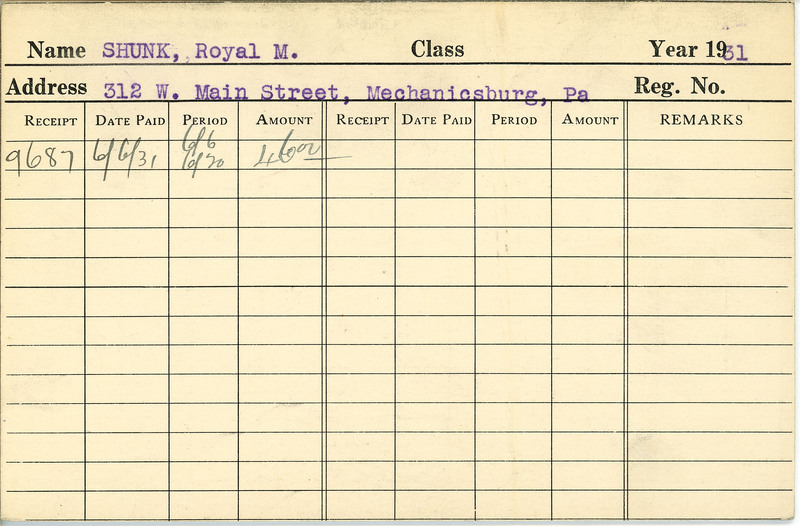 Name SHUNK, Royal M. Class Year 1931
Address 312 W. Main Street, Mechanicsburg, Pa Reg. No.
RECEIPT DATE PAID PERIOD AMOUNT RECEIPT DATE PAID PERIOD AMOUNT REMARKS
6/6
9687 6/6/31 6/20 46 00